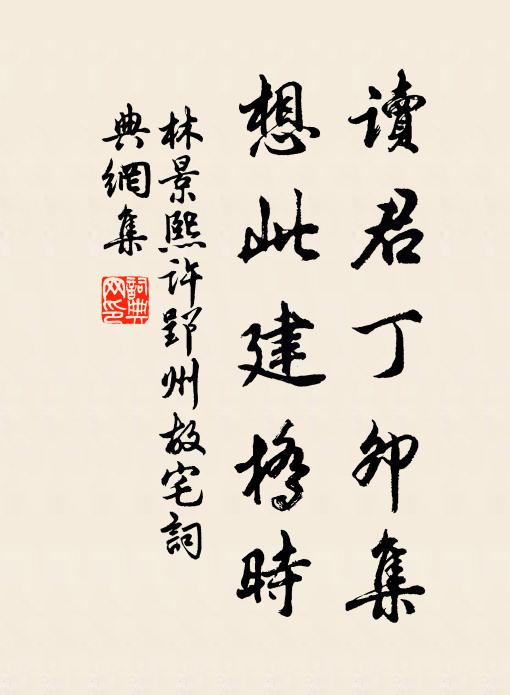 讀君丁卯集
想此建橋時
林景熙許郢州故宅詞
典網集
詞典网印